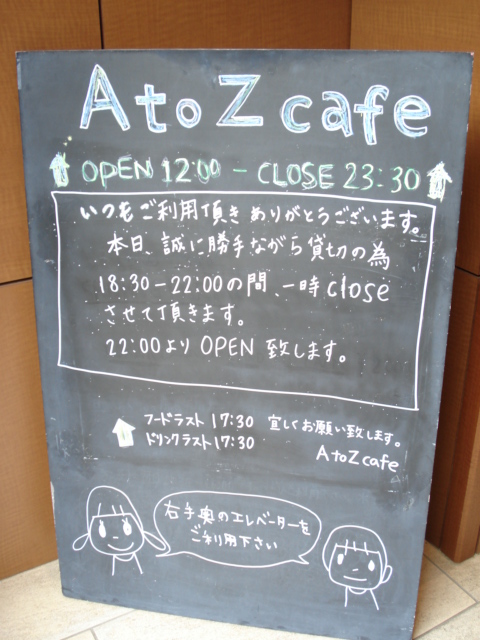 A to Z cafe
OPEN 12:00 - CLOSE 23:30
いつもご利用頂きありがとうございます。
本日、誠に勝手ながら貸切の為
18:30-22:00の間、一時close
させて頂きます。
22:00よりOPEN致します。
フードラスト 17:30 宜しくお願い致します。
ドリンクラスト 17:30
A to Z cafe
右手奥のエレベーターを
ご利用下さい